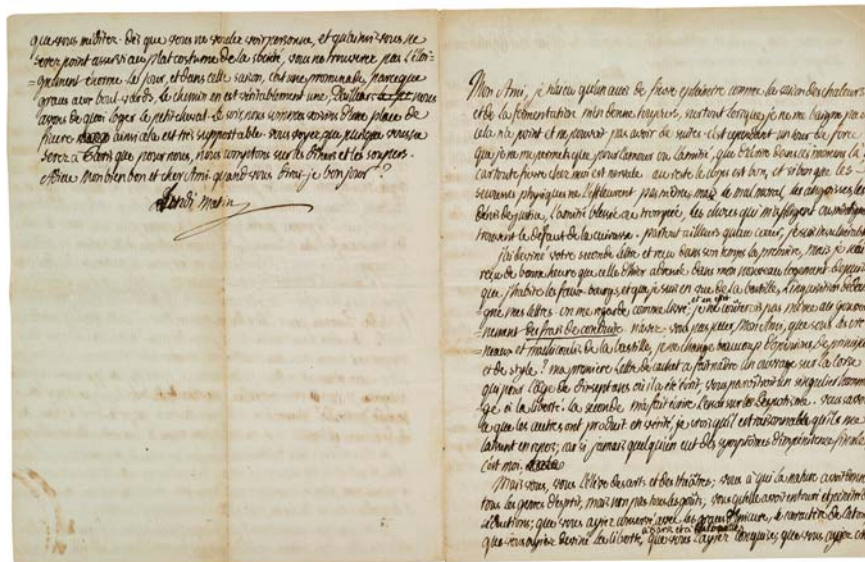 que vous méditez. dès que vous ne voulez voir personne, et qu'ainsi vous ne
serez point asservi au plat costume de la société, vous ne trouverez pas l'éloi-
=gnement énorme le jour, et dans cette saison, c'est une promenade, parce que
grace aux boulevards, le chemin en est véritablement une; D'ailleurs nous
avons de quoi loger le petit cheval. le soir nous sommes voisins d'une place de
fiacre ainsi cela est très supportable. vous voyez que puisque vous ne
serez à Paris que pour nous, nous comptons sur les diners et les soupers.
Adieu Mon bien bon et cher Ami. quand vous dirai-je bonjour?
Lundi matin
Mon Ami, je n'ai eu qu'un accès de fièvre éphémère comme la saison des chaleurs
et de la fermentation m'en donne toujours, surtout lorsque je ne me baigne pas
cela n'a point et ne pouvoit pas avoir de suites. c'est cependant un tour de force
que je ne me permets que pour l'amour ou l'amitié, que d'écrire dans ces momens là
car toute fièvre chez moi est nervale. au reste le corps est bon, et si bon que les
secousses physiques ne l'effleurent pas même, mais le mal moral, les angoisses, les
dénis de justice, l'amitié blessée ou trompée, les choses qui m'affligent
trouvent le défaut de la cuirasse. partout ailleurs qu'au coeur, je suis invulnérable
j'ai deviné votre seconde lettre et reçu dans son temps la première, mais je n'ai
reçu de bonne heure que celle d'hier adressée dans mon nouveau logement. depuis
que j'habite les faux-bourgs, et que je suis en vue de la bastille, l'inquisition dédai
gne mes lettres. on me regarde comme livré, et en effet je ne coûterois pas même au gouver
nement des frais de conduite. n'avez-vous pas peur, Mon Ami, que sous les cré
=neaux et machicoulis de la bastille, je ne change beaucoup d'opinions, de principes
et de style? ma première lettre de cachet a fait naître un ouvrage sur la Corse
qui pour l'âge de dix sept ans où il a été écrit, vous paroîtroit un singulier homma
ge à la liberté. la seconde m'a fait écrire l'essai sur le Despotisme. vous savez
ce que les autres ont produit en vérité, je crois qu'il est raisonnable qu'ils me
laissent en repos; car si jamais quelqu'un eut des symptômes d'impénitence finale
c'est moi.
Mais vous, vous l'élève des arts et des théâtres; vous à qui la nature avoit donné
tous les genres d'esprit, mais non pas tous les goûts; vous qu'elle avoit entouré
séductions; que vous ayiez conservé avec les graces de le caractère de
que vous ayiez deviné la liberté, à Paris et à que vous l'ayiez conquise; que vous ayiez